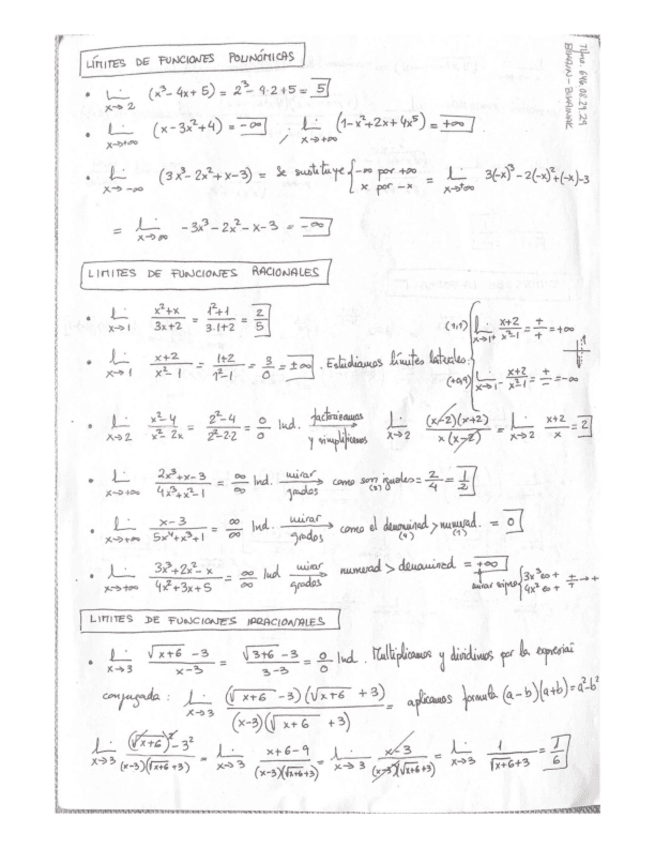 LÍMITES DE FUNCIONES POLINÓMICAS
Tfno. 646 08 29 29
• Lim x→2 (x³ - 4x + 5) = 2³ - 4·2 + 5 = 5
• Lim x→+∞ (x - 3x² + 4) = -∞ ; Lim x→+∞ (1 - x² + 2x + 4x⁵) = +∞
• Lim x→-∞ (3x³ - 2x² + x - 3) = Se sustituye { -∞ por +∞ x por -x = Lim x→+∞ 3(-x)³ - 2(-x)² + (-x) - 3
= Lim x→∞ -3x³ - 2x² - x - 3 = -∞
LIMITES DE FUNCIONES RACIONALES
• Lim x→1 (x²+x)/(3x+2) = (1²+1)/(3·1+2) = 2/5
• Lim x→1 (x+2)/(x²-1) = (1+2)/(1²-1) = 3/0 = ±∞. Estudiamos límites laterales:
(1,1) Lim x→1+ (x+2)/(x²-1) = +/+ = +∞
(0,9) Lim x→1- (x+2)/(x²-1) = +/- = -∞
• Lim x→2 (x²-4)/(x²-2x) = (2²-4)/(2²-2·2) = 0/0 Ind. factorizamos y simplificamos → Lim x→2 (x-2)(x+2)/x(x-2) = Lim x→2 (x+2)/x = 2
• Lim x→+∞ (2x³+x-3)/(4x³+x²-1) = ∞/∞ Ind. mirar grados → como son iguales = 2/4 = 1/2
• Lim x→+∞ (x-3)/(5x⁴+x³+1) = ∞/∞ Ind. mirar grados → como el denominad (4) > numerad. (1) = 0
• Lim x→+∞ (3x³+2x²-x)/(4x²+3x+5) = ∞/∞ Ind mirar grados → numerad > denominad = +∞
mirar signo { 3x³ es + 4x² es + +/+ → +
LIMITES DE FUNCIONES IRRACIONALES
• Lim x→3 (√(x+6) - 3)/(x-3) = (√(3+6) - 3)/(3-3) = 0/0 Ind. Multiplicamos y dividimos por la expresión
conjugada : Lim x→3 (√(x+6) - 3)(√(x+6) + 3)/(x-3)(√(x+6) + 3) = aplicamos formula (a-b)(a+b) = a²-b²
Lim x→3 ((√(x+6))² - 3²)/(x-3)(√(x+6)+3) = Lim x→3 (x+6-9)/(x-3)(√(x+6)+3) = Lim x→3 (x-3)/(x-3)(√(x+6)+3) = Lim x→3 1/(√(x+6)+3) = 1/6